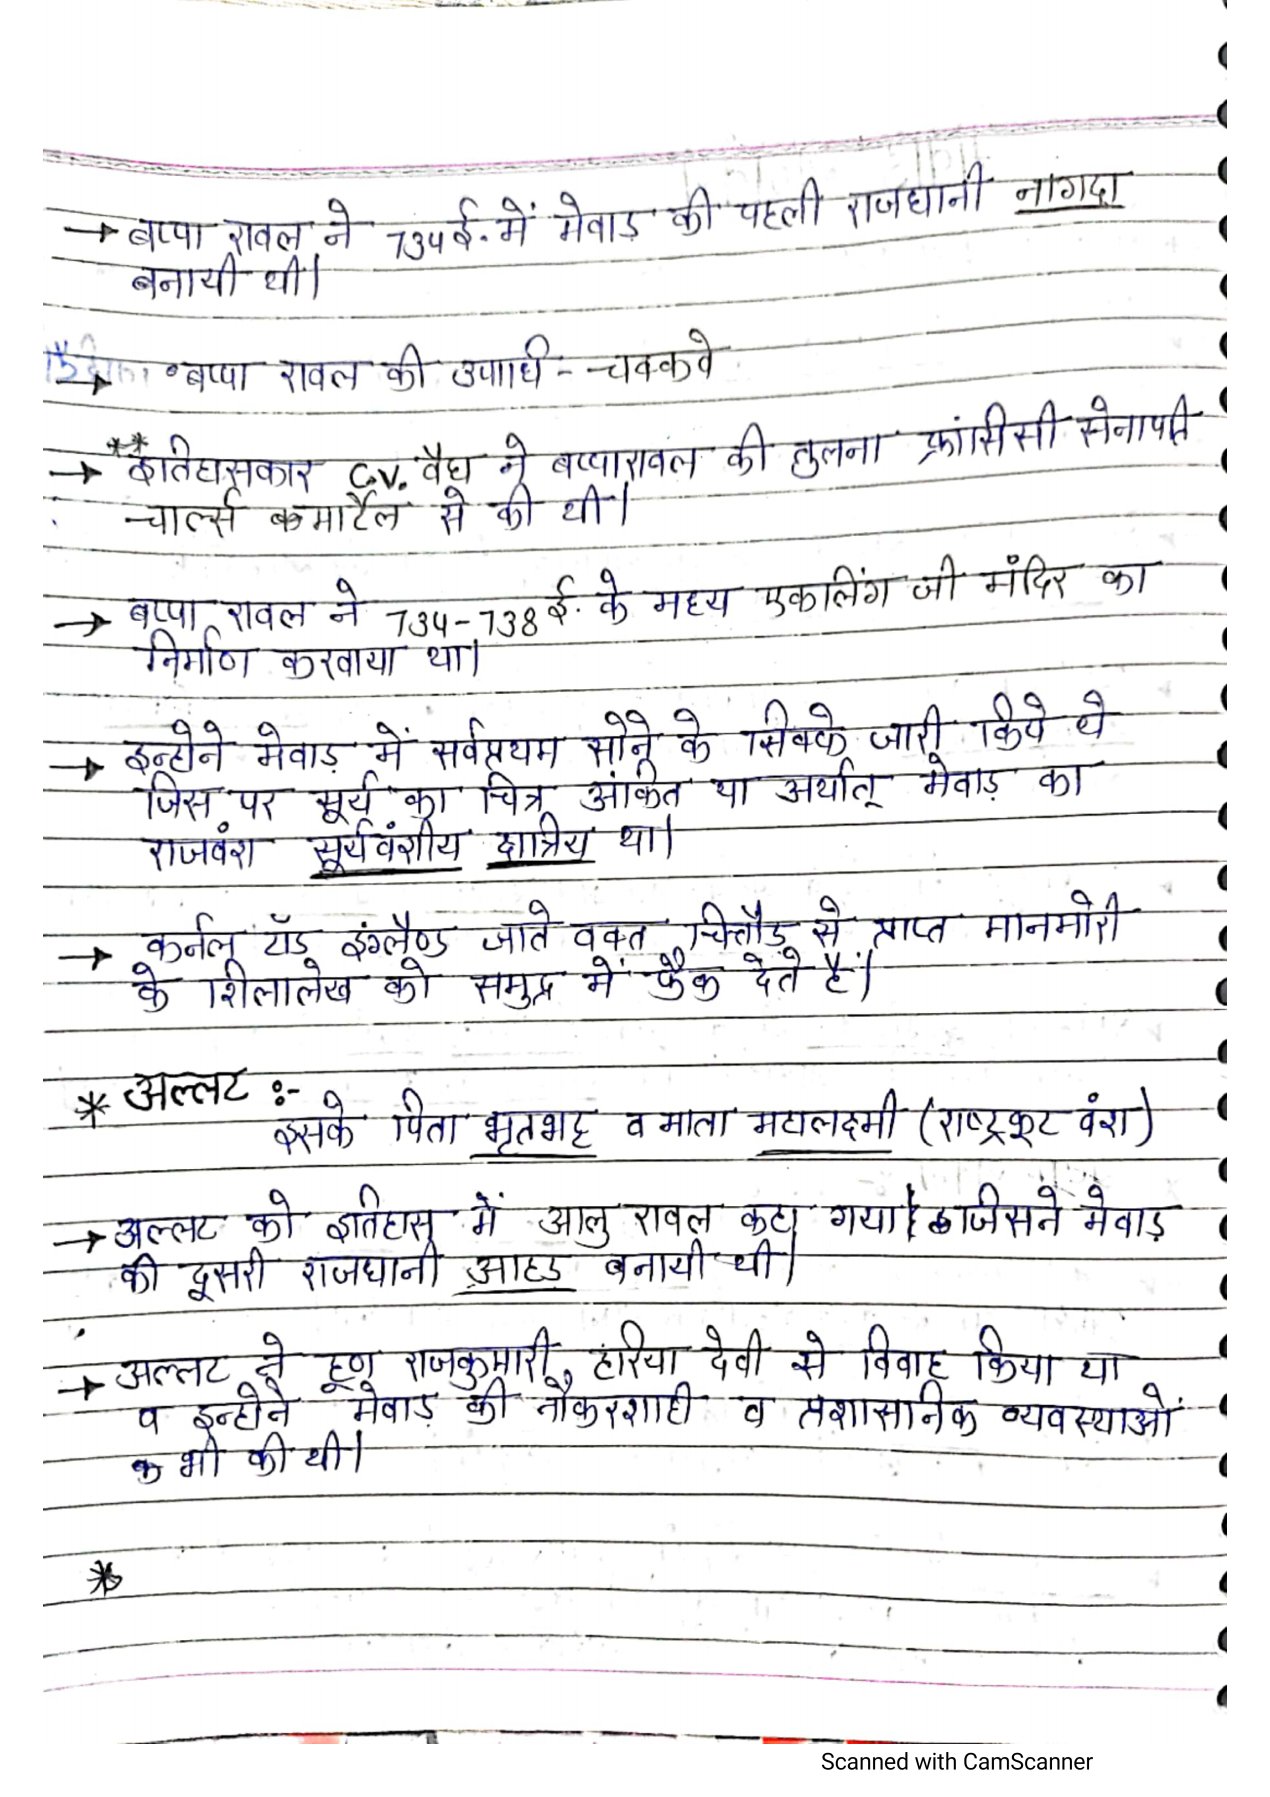 → बप्पा रावल ने 734ई. में मेवाड़ की पहली राजधानी नागदा
बनायी थी।
→ •बप्पा रावल की उपाधि - चक्कवे
→ ** इतिहासकार C.V. वैद्य ने बप्पारावल की तुलना फ्रांसीसी सेनापति
चार्ल्स कमार्टेल से की थी।
→ बप्पा रावल ने 734-738 ई. के मध्य एकलिंग जी मंदिर का
निर्माण करवाया था।
→ इन्होने मेवाड़ में सर्वप्रथम सोने के सिक्के जारी किये थे
जिस पर सूर्य का चित्र अंकित था अर्थात् मेवाड़ का
राजवंश सूर्यवंशीय क्षत्रिय था।
→ कर्नल टॉड इंग्लैण्ड जाते वक्त चित्तौड़ से प्राप्त मानमोरी
के शिलालेख को समुद्र में फेंक देते हैं।
* अल्लट :-
इसके पिता भृतभट्ट व माता महालक्ष्मी (राष्ट्रकूट वंश)
→ अल्लट को इतिहास में आलु रावल कहा गया। जिसने मेवाड़
की दूसरी राजधानी आहड़ बनायी थी।
→ अल्लट ने हूण राजकुमारी हरिया देवी से विवाह किया था
व इन्होने मेवाड़ की नौकरशाही व प्रशासनिक व्यवस्थाओं
क भी की थी।
*
Scanned with CamScanner